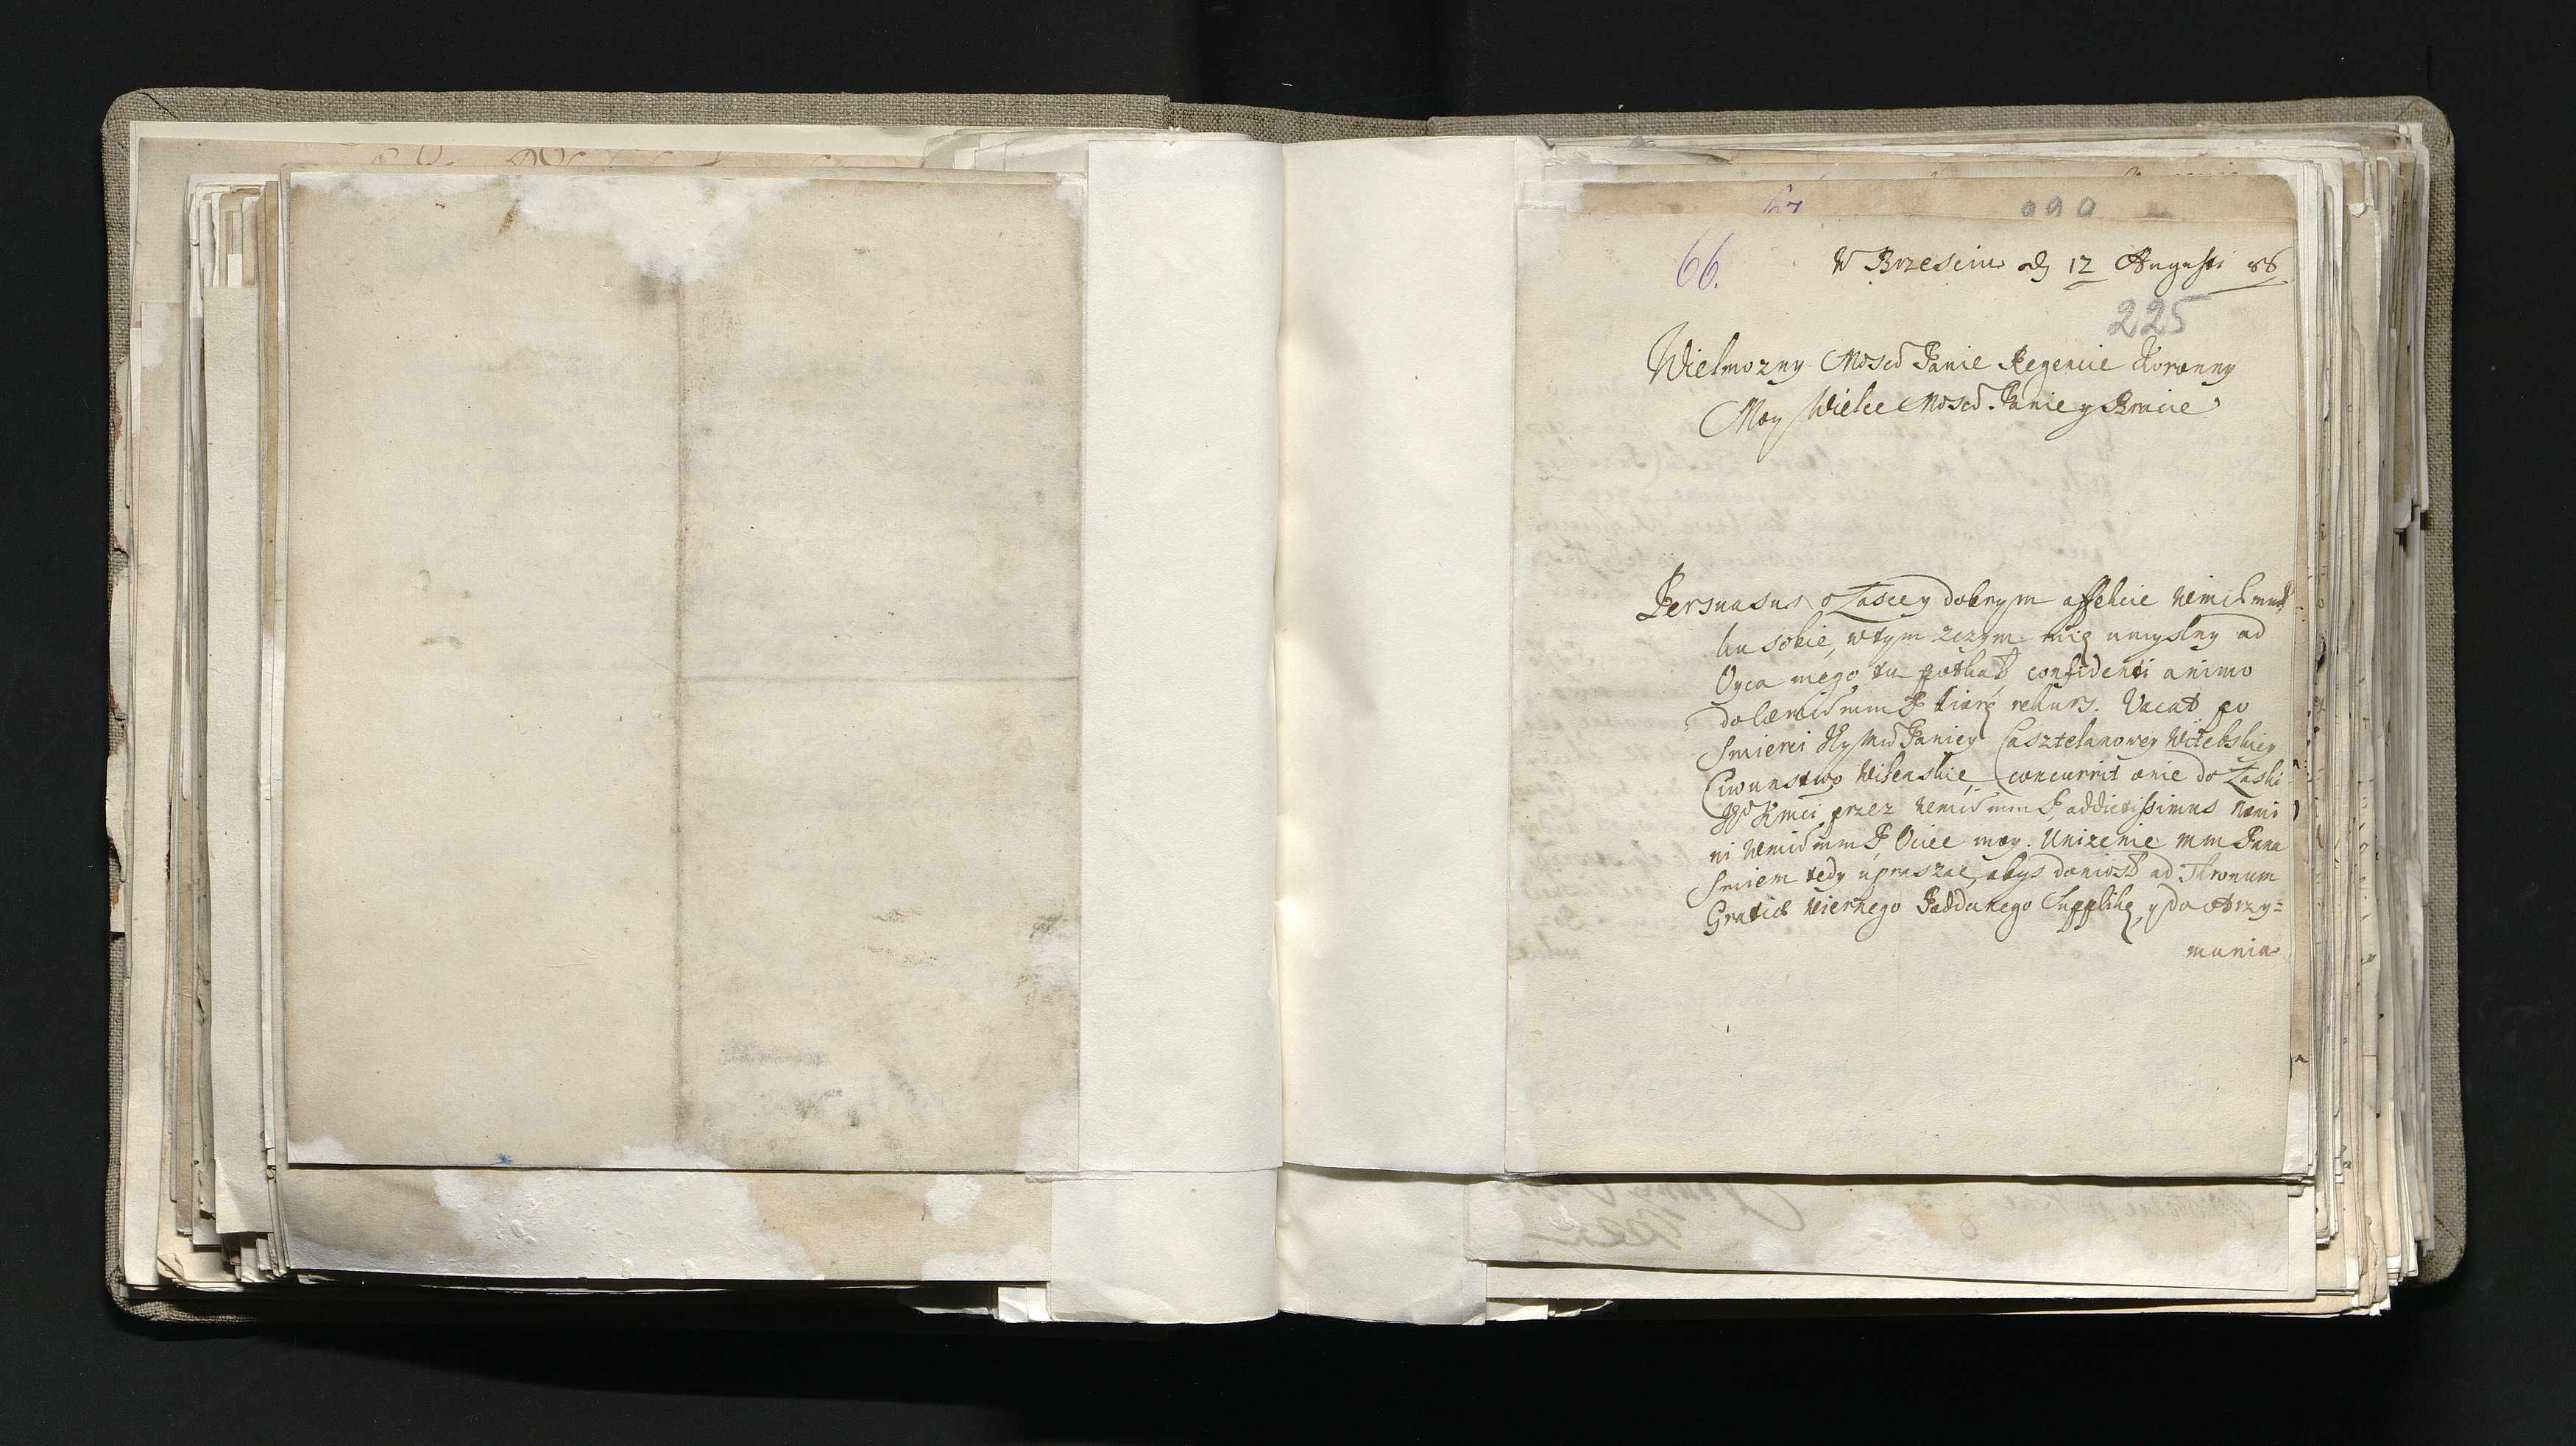 66.
W Brzesciu d 12 Augusti 86
225
Wielmozny Mosci Panie Regencie Koronny
Moy Wielce Mosci Panie y Bracie
Persuasus o Łascey dobrym affekcie
ku sobie, w tym zczym mię umyslny ad
Oyca mego tu potkał, confidenti animo
do biorę rekurs. Vacat po
Smierci Paniey Casztelanowey Witebskiey
Ciwunstwo Wilenskie, concurrit onie do Łaski
przez addictissimus nomi
ni Ociec moy. Unizenie mm Pana
Smiem tedy upraszac, abys doniosł ad Thronum
Gratiæ Wiernego Poddanego Supplikę, y do otrzy=
mania